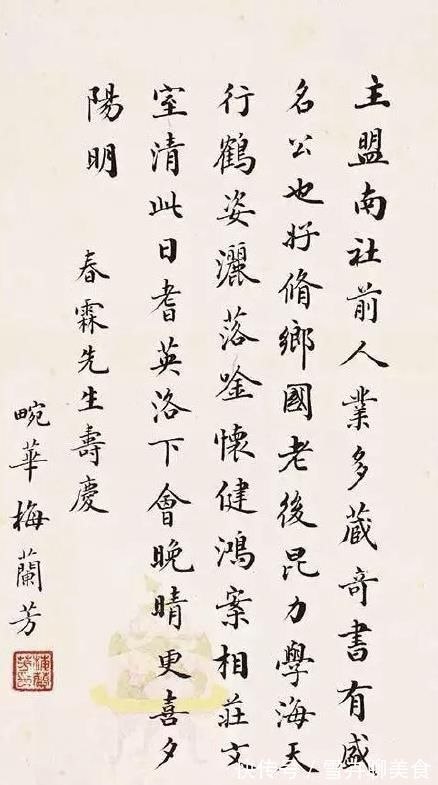 主盟南社前人業多蔵奇書有盛
名公也好脩鄉國老後昆力學海天
行鶴姿灑落唫懷健鴻案相莊文
室清此日耆英洛下會晚晴更喜夕
陽明
春霖先生壽慶
畹華梅蘭芳
快传号/雪卉聊美食